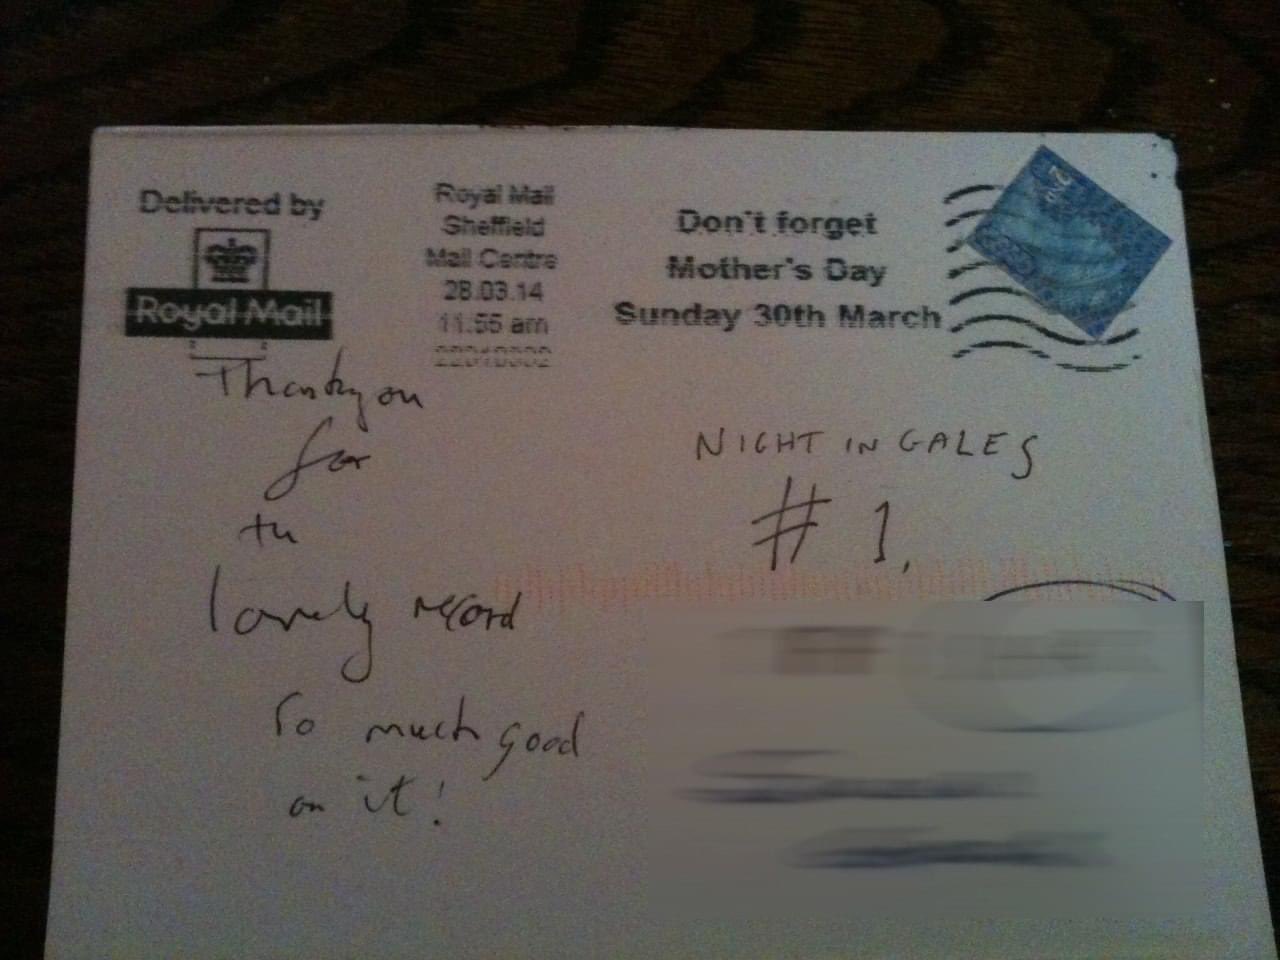 Delivered by
Royal Mail
Royal Mail
Sheffield
Mail Centre
28.03.14
11:55 am
Don't forget
Mother's Day
Sunday 30th March
2nd
Thankyou
for
the
lovely record
So much good
on it!
NIGHTINGALES
# 1,